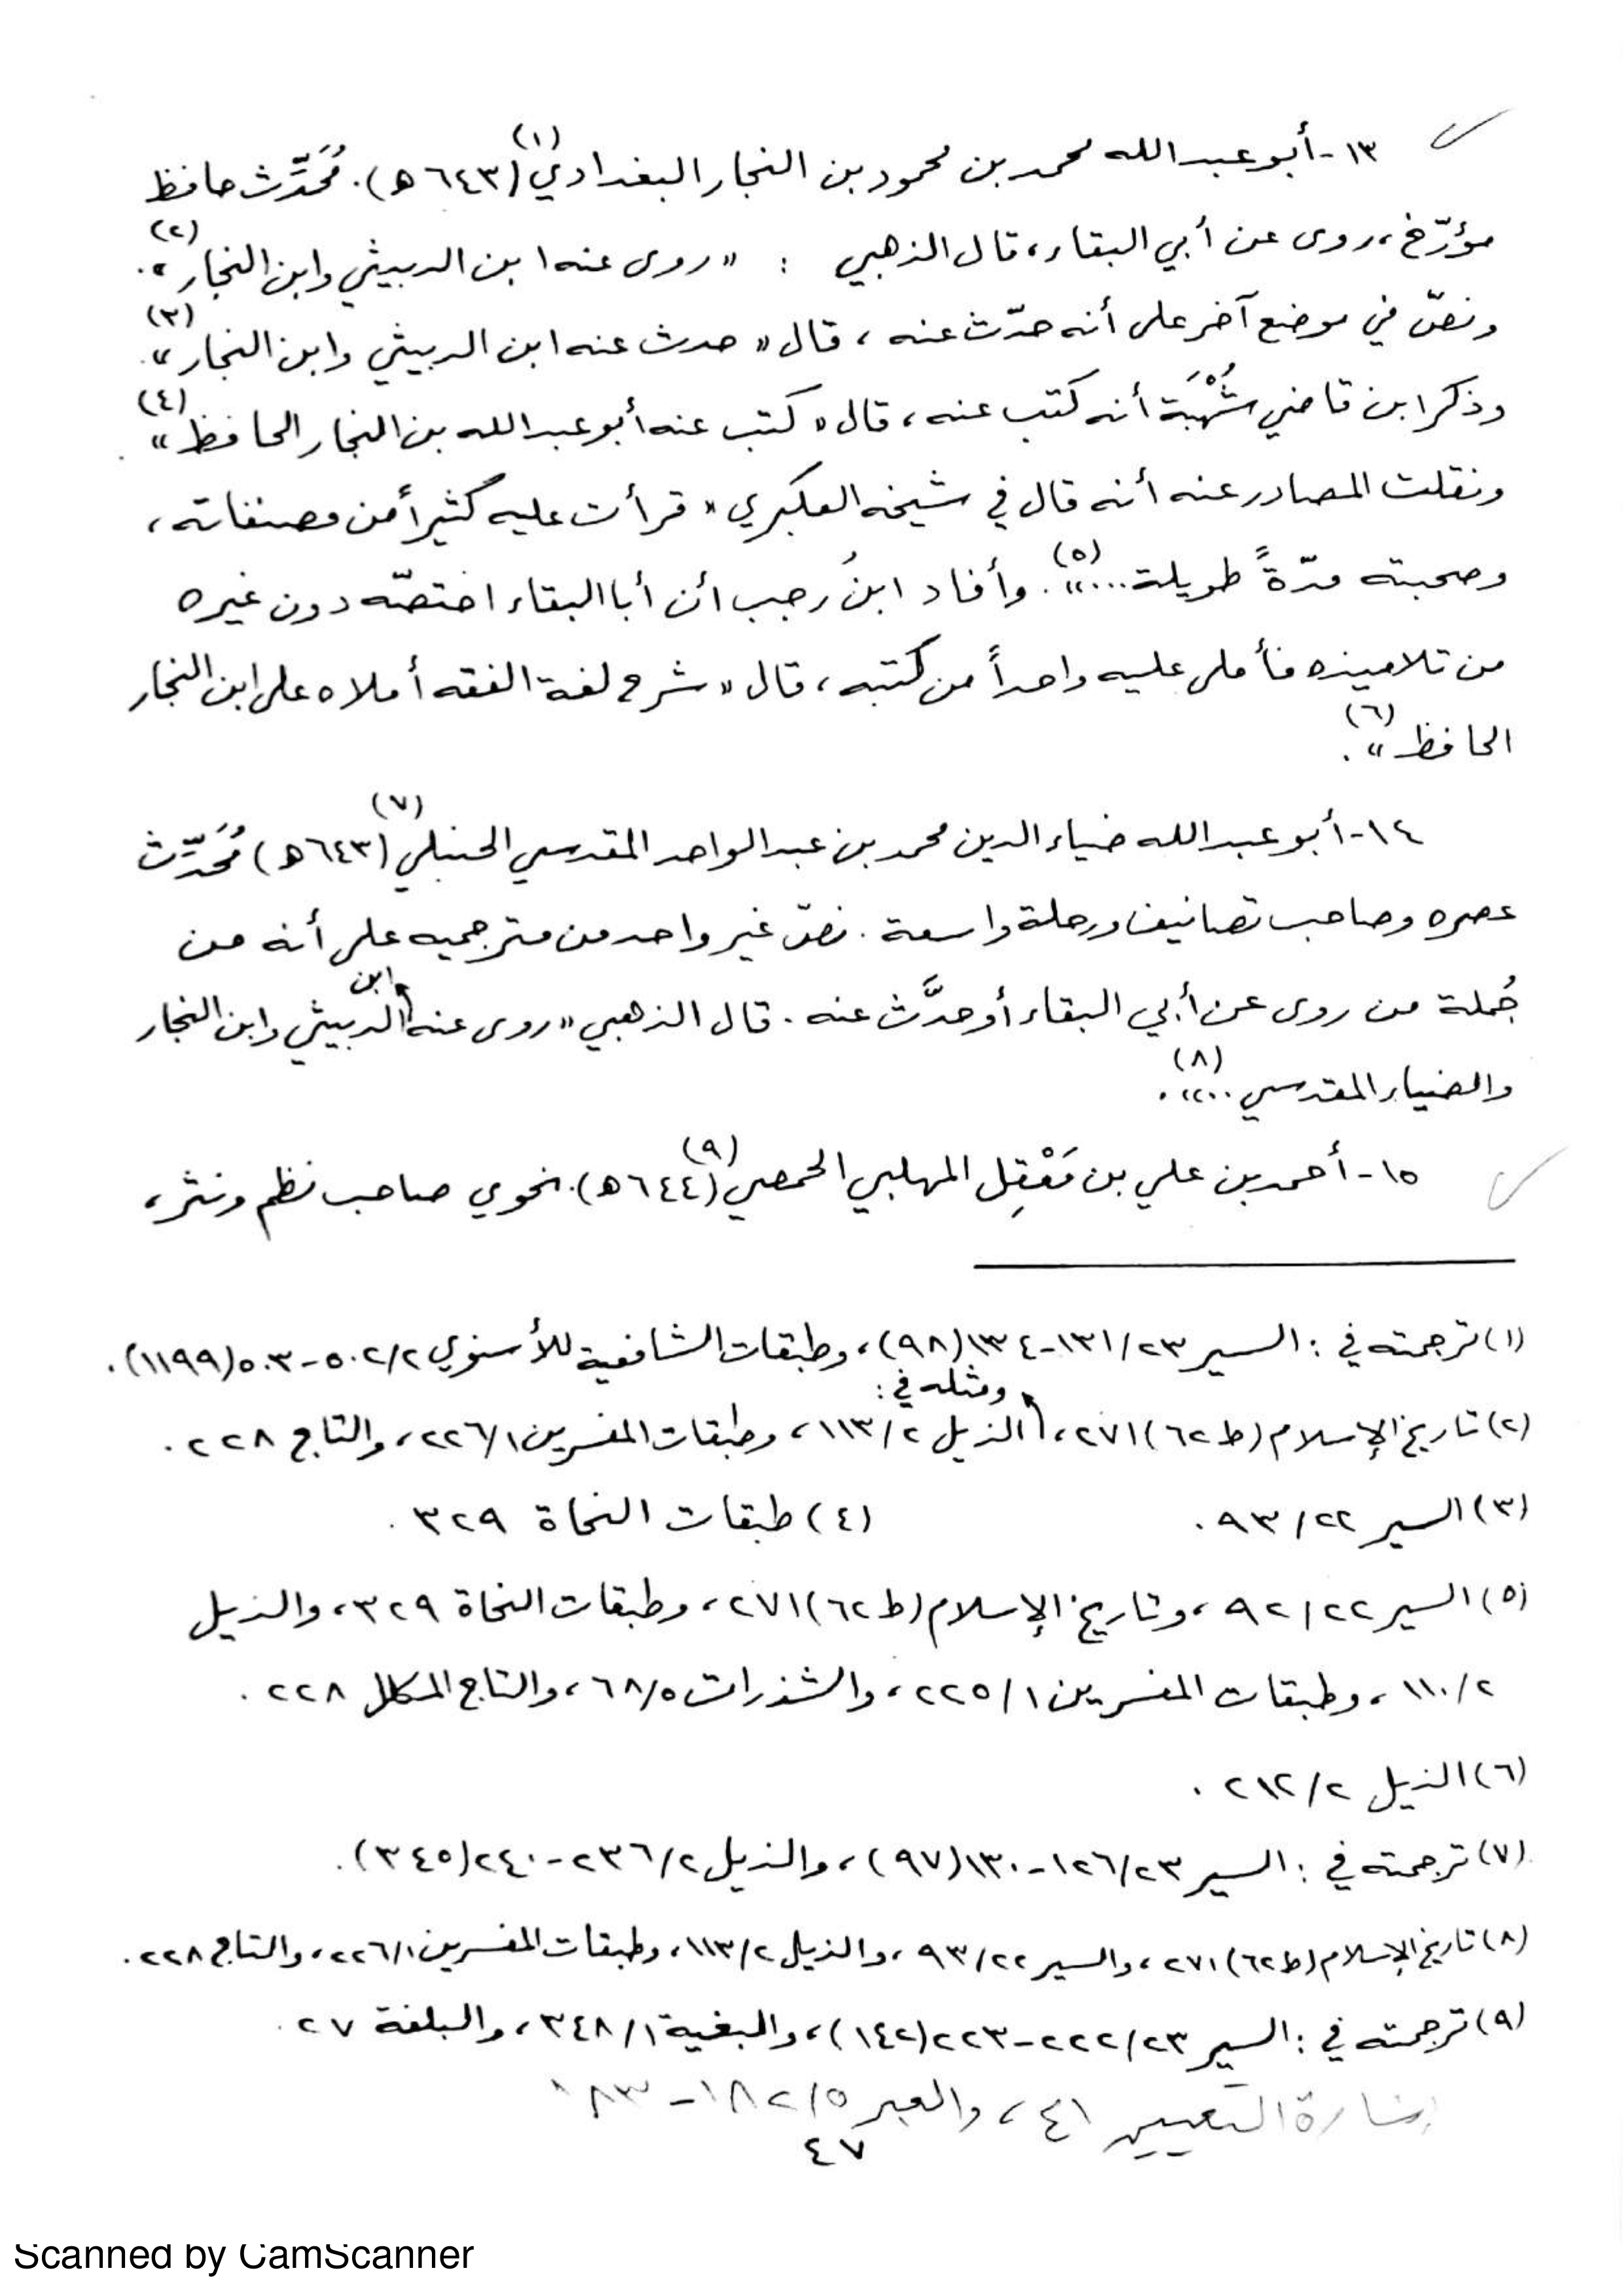 ١٣- أبو عبد الله محمد بن محمود بن النجار البغدادي(١) (٦٤٣ ه). مُحَدِّث حافظ
مؤرّخ، روى عن أبي البقاء، قال الذهبي : « روى عنه ابن الدبيثي وابن النجار »(٢).
ونصّ في موضع آخر على أنه حدّث عنه ، قال « حدث عنه ابن الدبيثي وابن النجار »(٣).
وذكر ابن قاضي شُهْبَة أنه كتب عنه ، قال « كتب عنه أبو عبد الله بن النجار الحافظ »(٤).
ونقلت المصادر عنه أنه قال في شيخه العكبري « قرأت عليه كثيراً من مصنفاته ،
وصحبته مدّةً طويلة ... »(٥). وأفاد ابنُ رجب أن أبا البقاء اختصّه دون غيره
من تلاميذه فأملى عليه واحداً من كتبه ، قال « شرح لغة الفقه أملاه على ابن النجار
الحافظ »(٦).
١٤- أبو عبد الله ضياء الدين محمد بن عبد الواحد المقدسي الحنبلي(٧) (٦٤٣ ه) مُحَدِّث
عصره وصاحب تصانيف ورحلة واسعة . نصّ غير واحد من مترجميه على أنه من
جُملة من روى عن أبي البقاء أو حدَّث عنه . قال الذهبي « روى عنه ابن الدبيثي وابن النجار
والضياء المقدسي .. »(٨).
١٥- أحمد بن علي بن مَعْقِل المهلبي الحمصي(٩) (٦٤٤ ه). نحوي صاحب نظم ونثر ،
(١) ترجمته في : السير ٢٣/ ١٣١-١٣٤ (٩٨)، وطبقات الشافعية للأسنوي ٢/ ٥٠٢-٥٠٣ (١١٩٩).
(٢) تاريخ الإسلام (ط ٦٢) ٢٧١، ومثله في : الذيل ٢/ ١١٣ ، وطبقات المفسرين ١/ ٢٢٦، والتاج ٢٢٨ .
(٣) السير ٢٢/ ٩٣ . (٤) طبقات النحاة ٣٢٩ .
(٥) السير ٢٢/ ٩٢ ، وتاريخ الإسلام (ط ٦٢) ٢٧١ ، وطبقات النحاة ٣٢٩ ، والذيل
٢/ ١١٠ ، وطبقات المفسرين ١/ ٢٢٥ ، والشذرات ٥/ ٦٨ ، والتاج المكلل ٢٢٨ .
(٦) الذيل ٢/ ٢١٢ .
(٧) ترجمته في : السير ٢٣/ ١٢٦-١٣٠ (٩٧) ، والذيل ٢/ ٢٣٦-٢٤٠ (٣٤٥).
(٨) تاريخ الإسلام (ط ٦٢) ٢٧١ ، والسير ٢٢/ ٩٣ ، والذيل ٢/ ١١٣ ، وطبقات المفسرين ١/ ٢٢٦ ، والتاج ٢٢٨ .
(٩) ترجمته في : السير ٢٣/ ٢٢٢-٢٢٣ (١٤٢) ، والبغية ١/ ٣٤٨ ، والبلغة ٢٧ .
إشارة التعيين ٤١ ، والعبر ٥/ ١٨٢-١٨٣
٤٧
Scanned by CamScanner